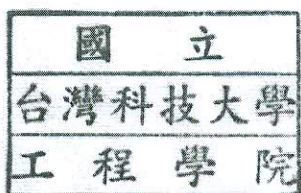 國立
台灣科技大學
工程學院